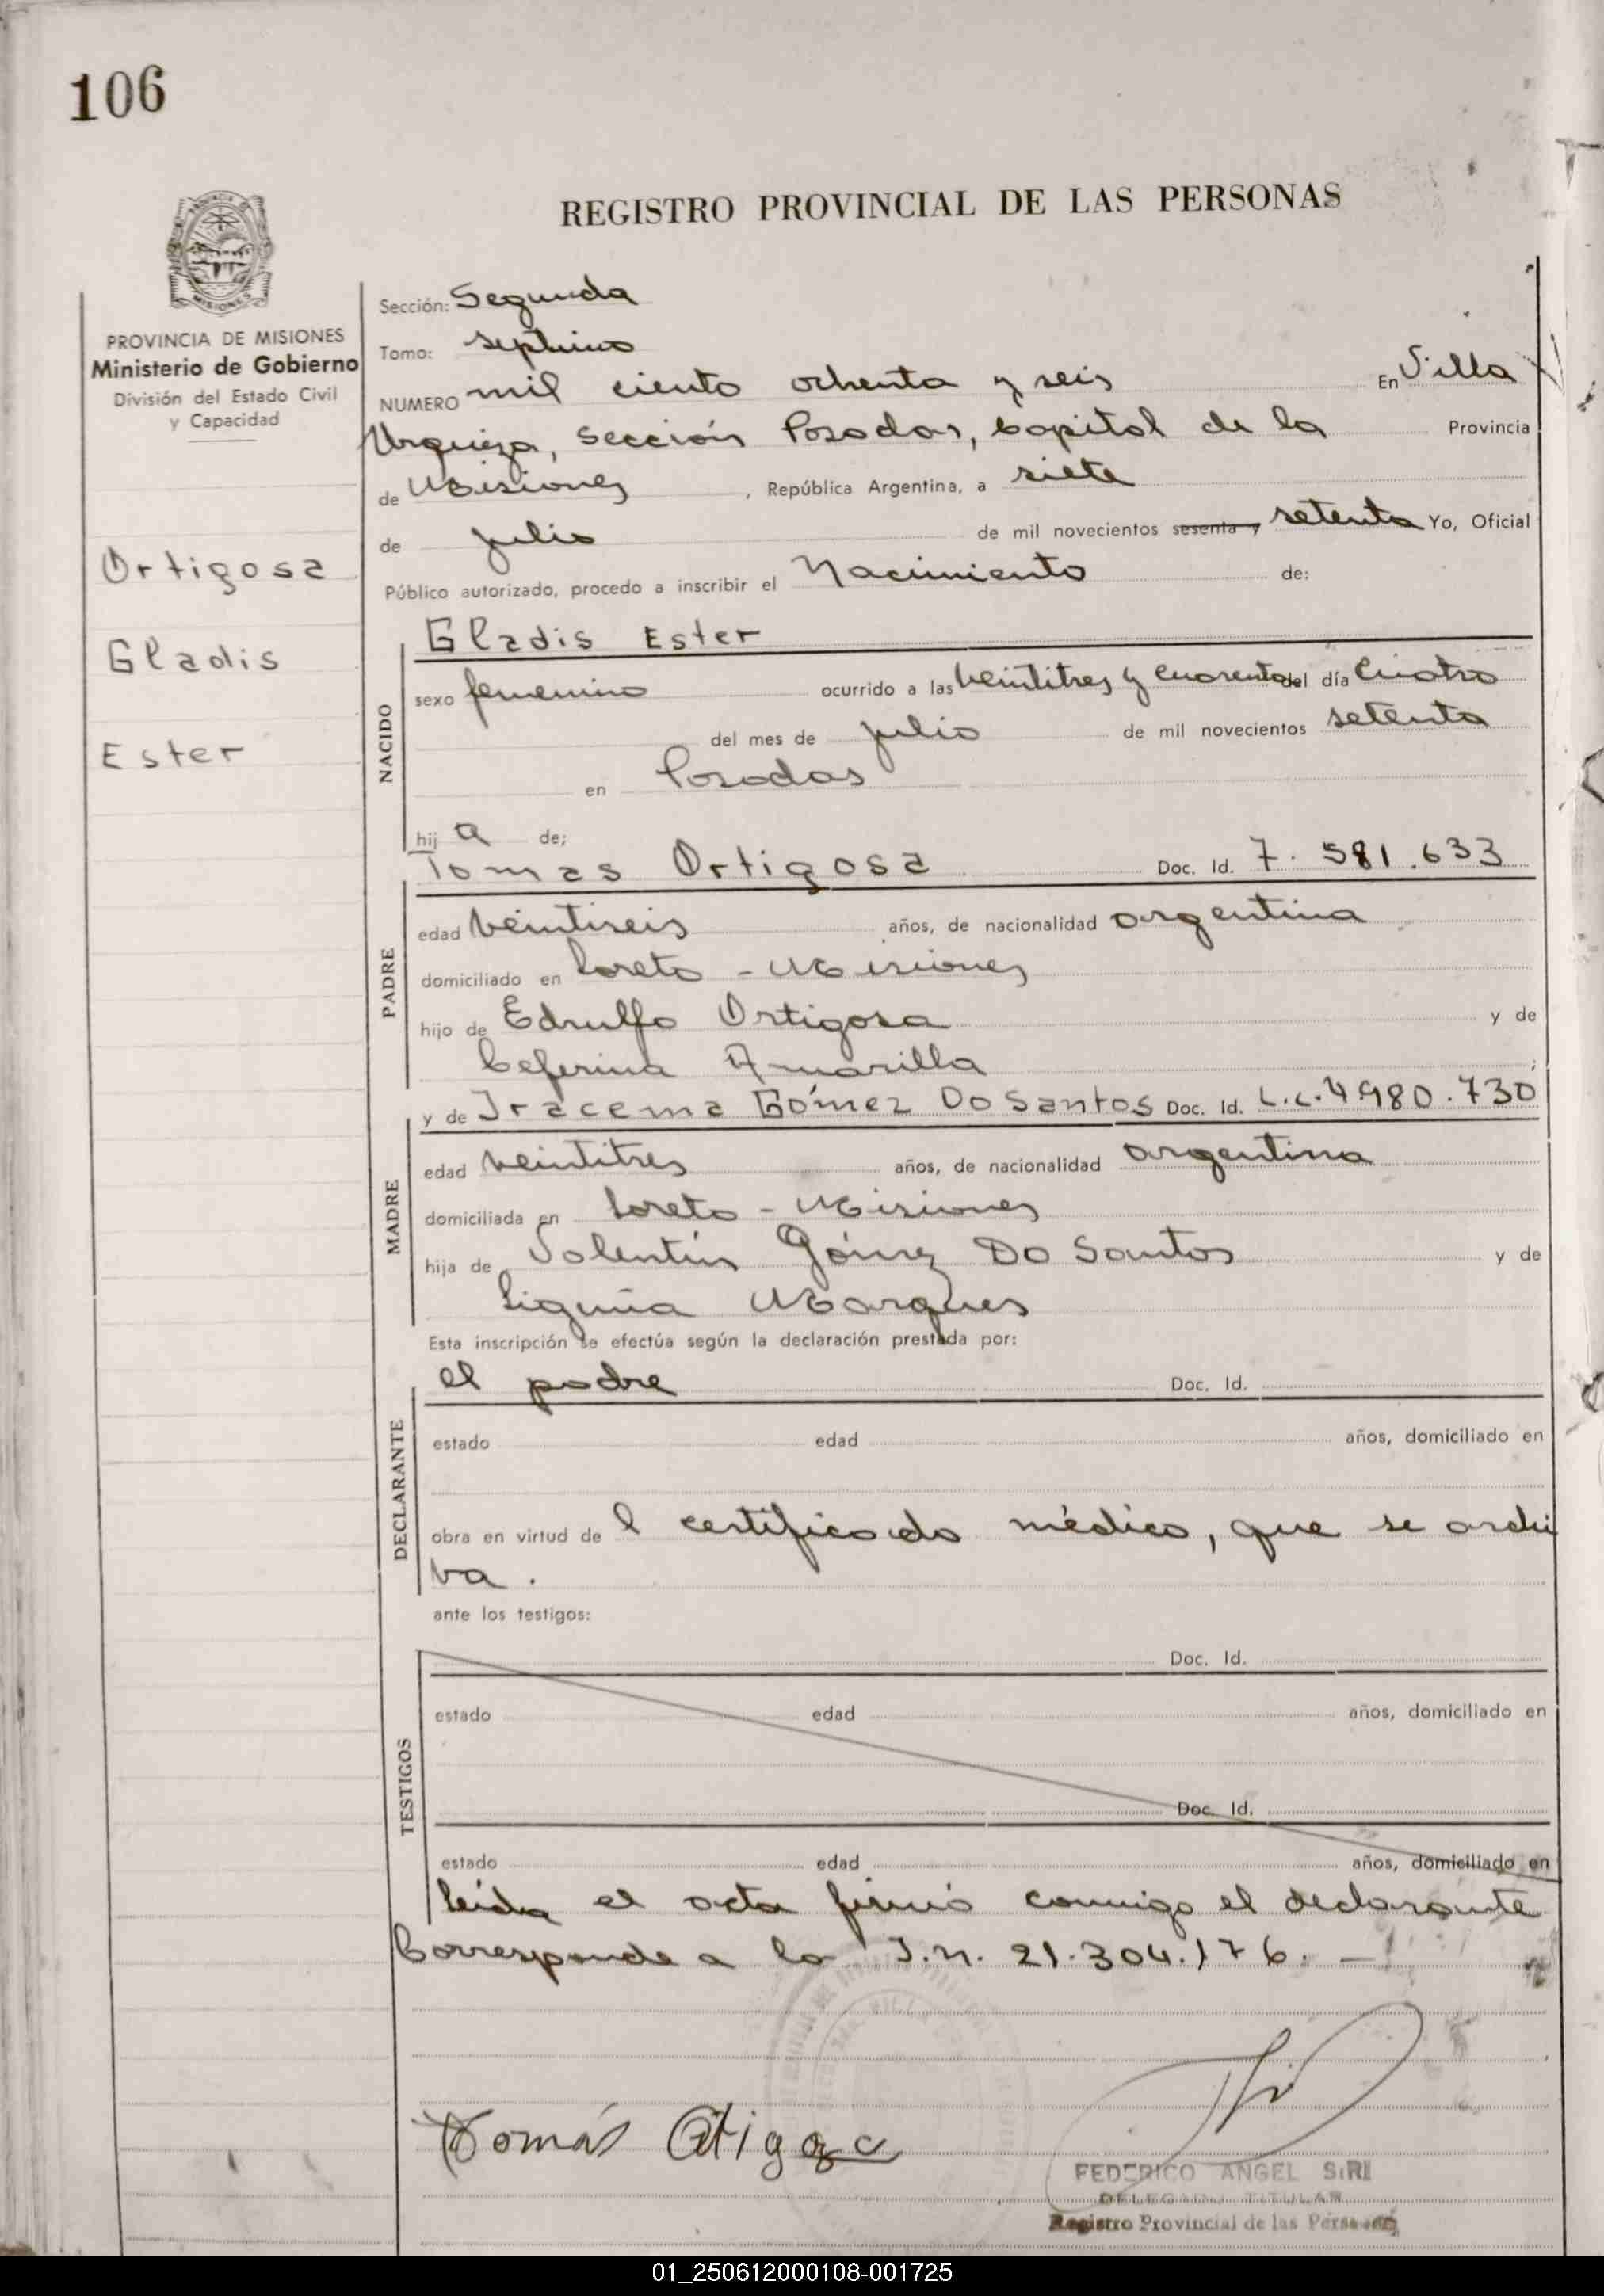 106
REGISTRO PROVINCIAL DE LAS PERSONAS
MISIONES
PROVINCIA DE MISIONES
Ministerio de Gobierno
División del Estado Civil
y Capacidad
Ortigosa
Gladis
Ester
Sección: Segunda
Tomo: septimo
NUMERO mil ciento ochenta y seis En Villa
Urquiza, sección Posadas, Capital de la Provincia
de Misiones, República Argentina, a siete
de julio de mil novecientos sesenta y setenta Yo, Oficial
Público autorizado, procedo a inscribir el Nacimiento de:
NACIDO
Gladis Ester
sexo femenino ocurrido a las veintitres y cuarenta del día cuatro
del mes de julio de mil novecientos setenta
en Posadas
hija de;
PADRE
Tomas Ortigosa Doc. Id. 7.581.633
edad veintiseis años, de nacionalidad argentina
domiciliado en Loreto - Misiones
hijo de Edrulfo Ortigosa y de
Ceferina Amarilla;
MADRE
y de Iracema Gómez Do Santos Doc. Id. L.C.4.980.730
edad veintitres años, de nacionalidad argentina
domiciliada en Loreto - Misiones
hija de Valentín Gómez Do Santos y de
Marques
Esta inscripción se efectúa según la declaración prestada por:
DECLARANTE
el padre Doc. Id.
estado edad años, domiciliado en
obra en virtud de l certificado médico, que se archi
va.
ante los testigos:
TESTIGOS
Doc. Id.
estado edad años, domiciliado en
Doc. Id.
estado edad años, domiciliado en
leída el acta firmó conmigo el declarante
Corresponde a la I.N. 21.304.176. -
Tomás Ortigoza
FEDERICO ANGEL SIRI
DELEGADO TITULAR
Registro Provincial de las Personas
01_250612000108-001725